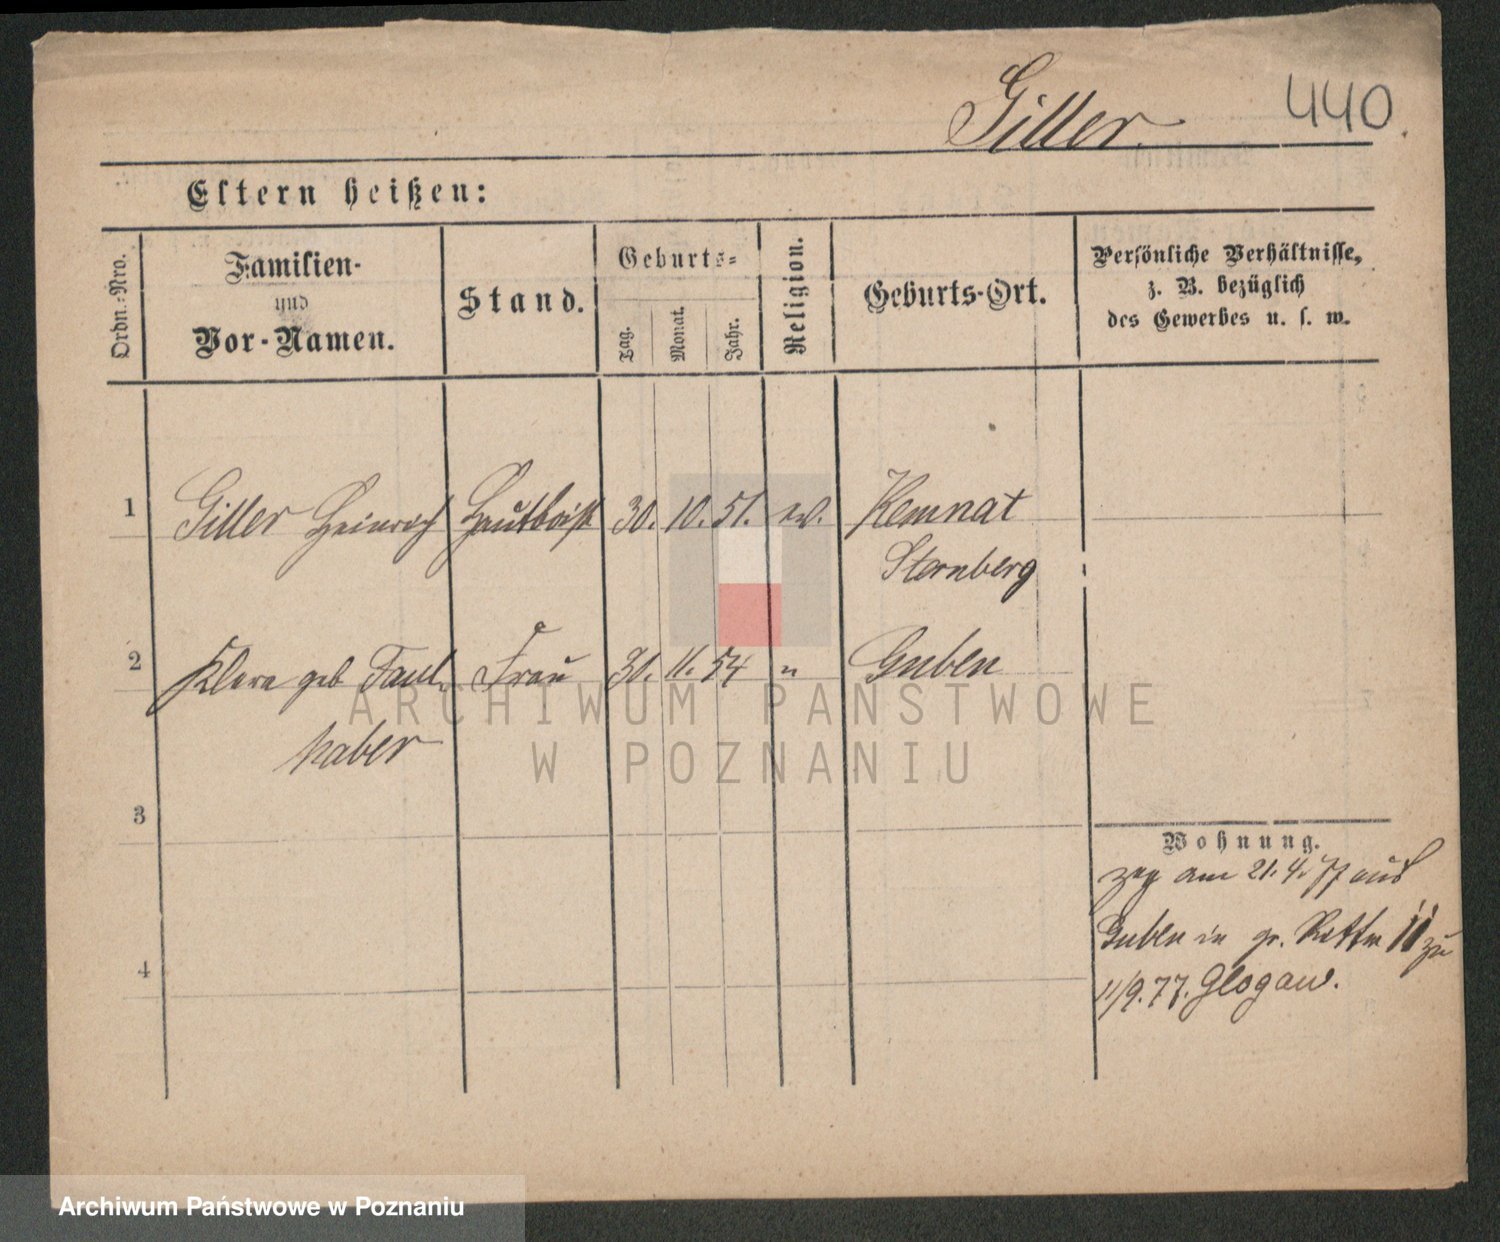 Giller. 440.
Eltern heißen:
Ordn.-Nro.
Familien-
und
Vor-Namen.
Stand.
Geburts-
Tag.
Monat.
Jahr.
Religion.
Geburts-Ort.
Persönliche Verhältnisse,
z. B. bezüglich
des Gewerbes u. s. w.
1 Giller Heinrich Hautboist 30. 10. 51. ev. Kemnat
Sternberg
2 Klara geb Faul- Frau 30. 11. 54 " Guben
haber
3
Wohnung.
zog am 21. 4. 77 aus
Guben in gr. 11 zu
4
11/9. 77. Glogau.
ARCHIWUM PAŃSTWOWE
W POZNANIU
Archiwum Państwowe w Poznaniu